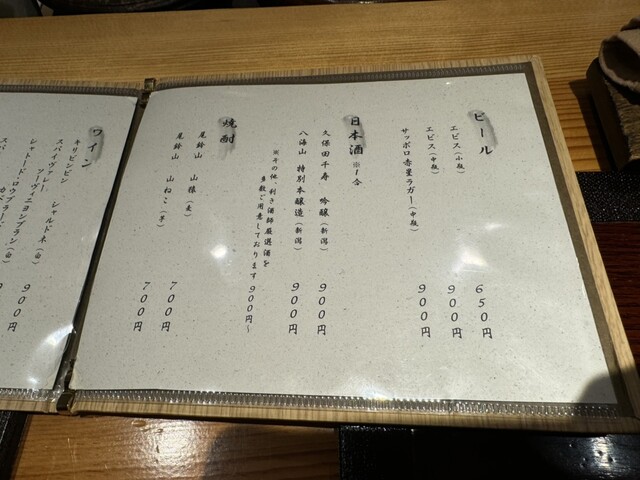 ビール
エビス（小瓶） 650円
エビス（中瓶） 900円
サッポロ赤星ラガー（中瓶） 900円
日本酒 ※1合
久保田千寿 吟醸（新潟） 900円
八海山 特別本醸造（新潟） 900円
※その他、利き酒師厳選酒を
多数ご用意しております 900円～
焼酎
尾鈴山 山猿（麦） 700円
尾鈴山 山ねこ（芋） 700円
ワイン
キリビンビン シャルドネ（白）
スパイヴァレー
ソーヴィニヨンブラン（白）
シャトードロウブラード